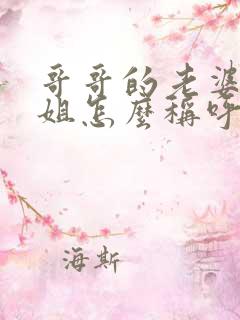 哥哥的老婆
姐怎麼稱呼
海斯